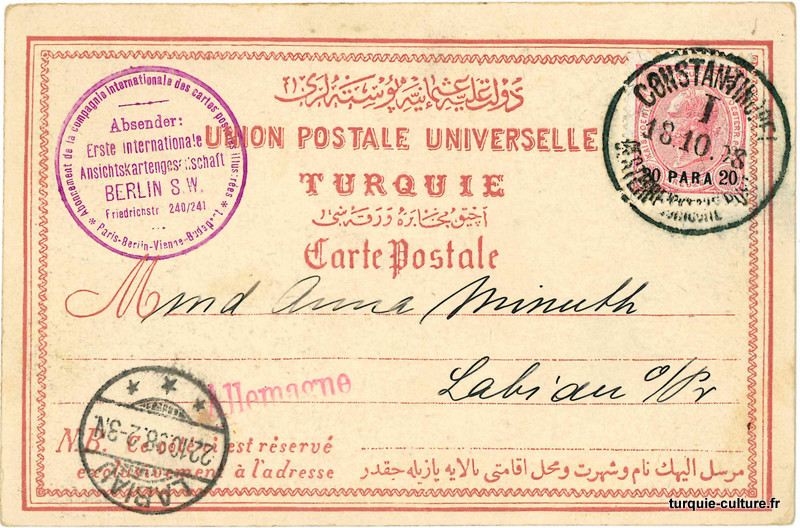 دولت علیهٔ عثمانیه پوسته لری
UNION POSTALE UNIVERSELLE
TURQUIE
آچیق مخابره ورقه سی
Carte Postale
Abonnement de la compagnie internationale des cartes postales illustrées
* Paris-Berlin-Vienne-
Absender:
Erste internationale
Ansichtskartengesellschaft
BERLIN S.W.
Friedrichstr 240/241
CONSTANTINOPEL
I
18.10.98
20 PARA 20
Mmd Anna Minuth
Labiau o/Pr
Allemagne
LABIAU
22.10.98.2-3N
N.B. Ce côté est réservé
exclusivement à l'adresse
مرسل الیهك نام و شهرت و محل اقامتی بالایه یازیله جقدر
turquie-culture.fr